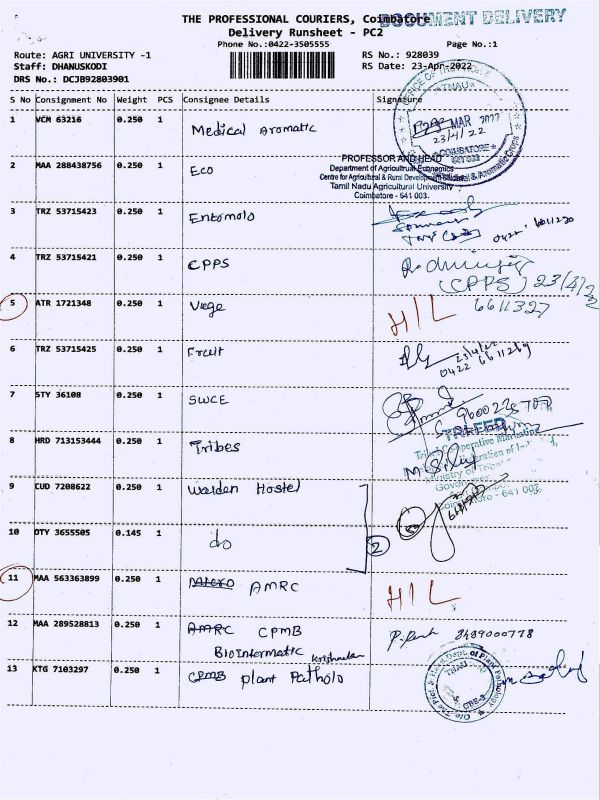 THE PROFESSIONAL COURIERS, Coimbatore
DOCUMENT DELIVERY
Delivery Runsheet - PC2
Phone No.:0422-3505555
Page No.:1
Route: AGRI UNIVERSITY -1
RS No.: 928039
Staff: DHANUSKODI
RS Date: 23-Apr-2022
DRS No.: DCJB92803901
S No Consignment No Weight PCS Consignee Details Signature
1 VCM 63216 0.250 1 Medical Aromatic
TNAU
MAR
23/4/22
COIMBATORE
641 003
PROFESSOR AND HEAD
Department of Agricultural Economics
Centre for Agricultural & Rural Development
Tamil Nadu Agricultural University
Coimbatore - 641 003.
2 MAA 288438756 0.250 1 Eco
3 TRZ 53715423 0.250 1 Entomolo
0422
4 TRZ 53715421 0.250 1 CPPS
(CPPS) 23/4/22
6611327
5 ATR 1721348 0.250 1 Vege H/L
6 TRZ 53715425 0.250 1 Fruit
0422 6611269
7 STY 36108 0.250 1 SWCE
8 HRD 713153444 0.250 1 Tribes
TRIFED
Tribal Cooperative Marketing
Ministry of Tribal
Coimbatore - 641 003.
9 CUD 7208622 0.250 1 Warden Hostel
10 OTY 3655505 0.145 1 do
2
11 MAA 563363899 0.250 1 AMRC H/L
12 MAA 289528813 0.250 1 AMRC CPMB
Biointermatic
8489000778
13 KTG 7103297 0.250 1 CPMB plant Patholo
O/o. The Prof. & Head Dept. of Plant Pathology
TNAU
CBE-3